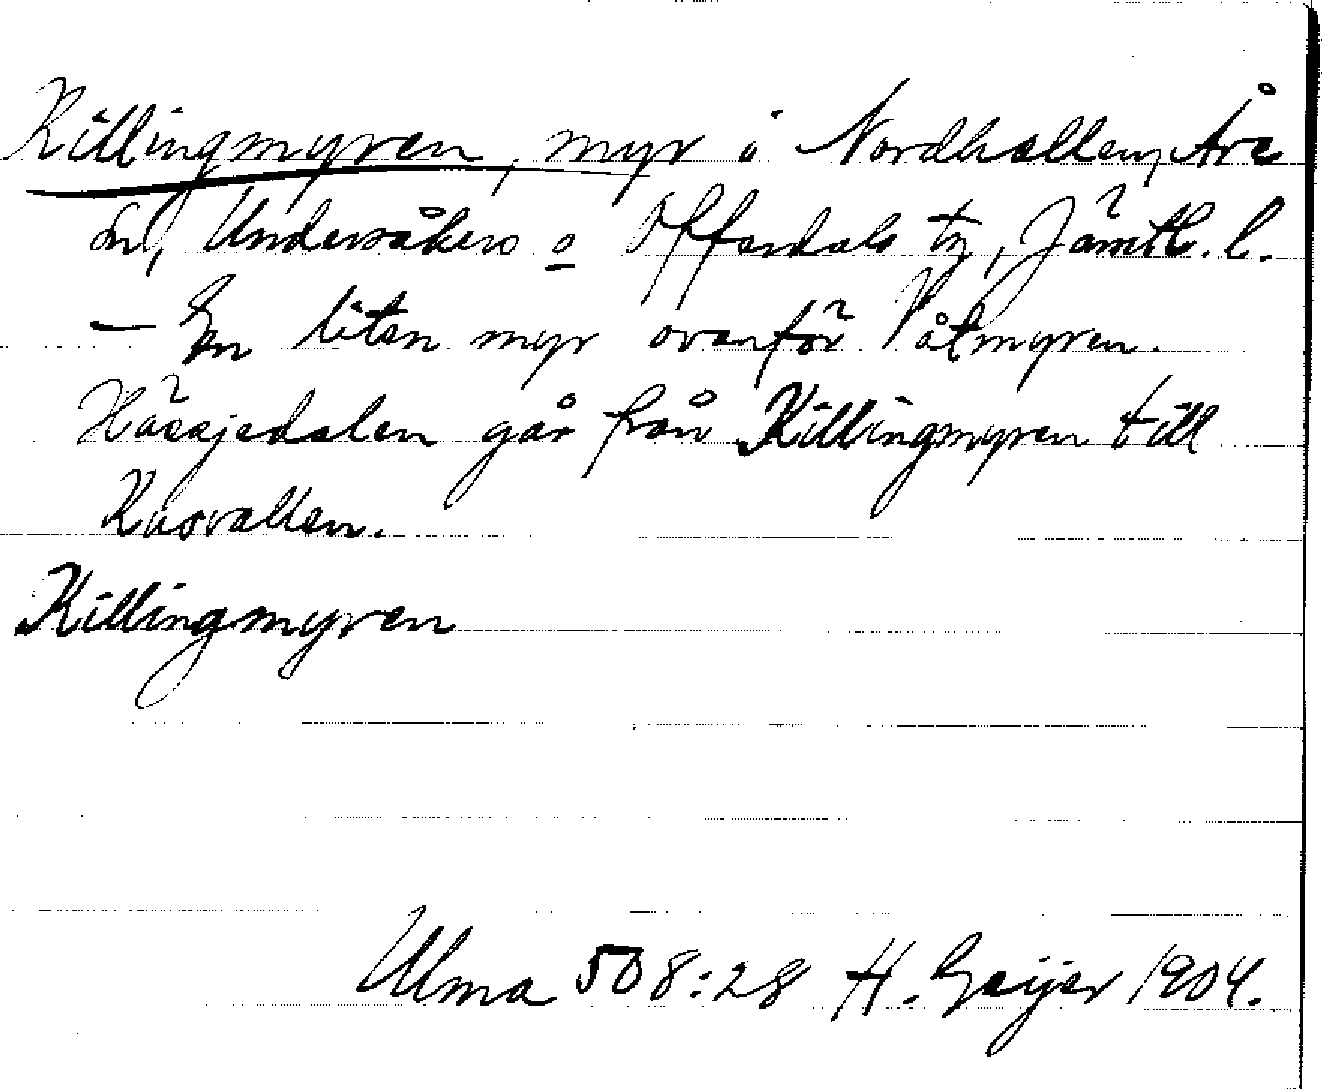 Killingmyren, myr i Nordhallen, Åre
sn, Undersåkers o Offerdals tg, Jämtl. l.
– En liten myr ovanför Våtmyren.
Hässjedalen går från Killingmyren till
Kusvallen.
Killingmyren
Ulma 508:28 H. Geijer 1904.